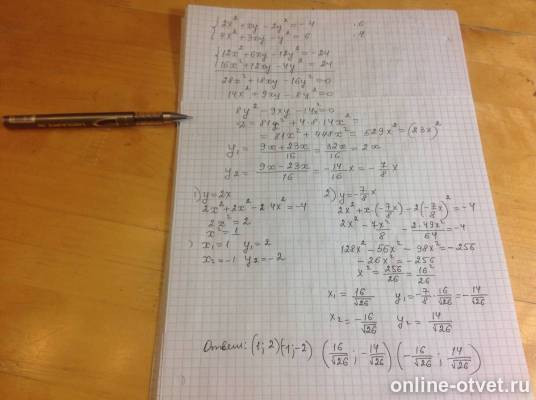 { 2x² + xy - 2y² = -4 | ·6
{ 4x² + 3xy - y² = 6 | ·4
{ 12x² + 6xy - 12y² = -24
{ 16x² + 12xy - 4y² = 24
28x² + 18xy - 16y² = 0
14x² + 9xy - 8y² = 0
8y² - 9xy - 14x² = 0
D = 81x² + 4·8·14x² =
= 81x² + 448x² = 529x² = (23x)²
y₁ = (9x + 23x)/16 = 32x/16 = 2x
y₂ = (9x - 23x)/16 = -14/16 x = -7/8 x
1) y = 2x
2x² + 2x² - 2·4x² = -4
2x² = 2
x² = 1
x₁ = 1 y₁ = 2
x₂ = -1 y₂ = -2
2) y = -7/8 x
2x² + x·(-7/8 x) - 2(-7/8 x)² = -4
2x² - 7x²/8 - 2·49x²/64 = -4
128x² - 56x² - 98x² = -256
-26x² = -256
x² = 256/26 = 16²/26
x₁ = 16/√26 y₁ = -7/8 · 16/√26 = -14/√26
x₂ = -16/√26 y₂ = 14/√26
Ответ: (1; 2) (-1; -2) (16/√26 ; -14/√26) (-16/√26 ; 14/√26)
online-otvet.ru